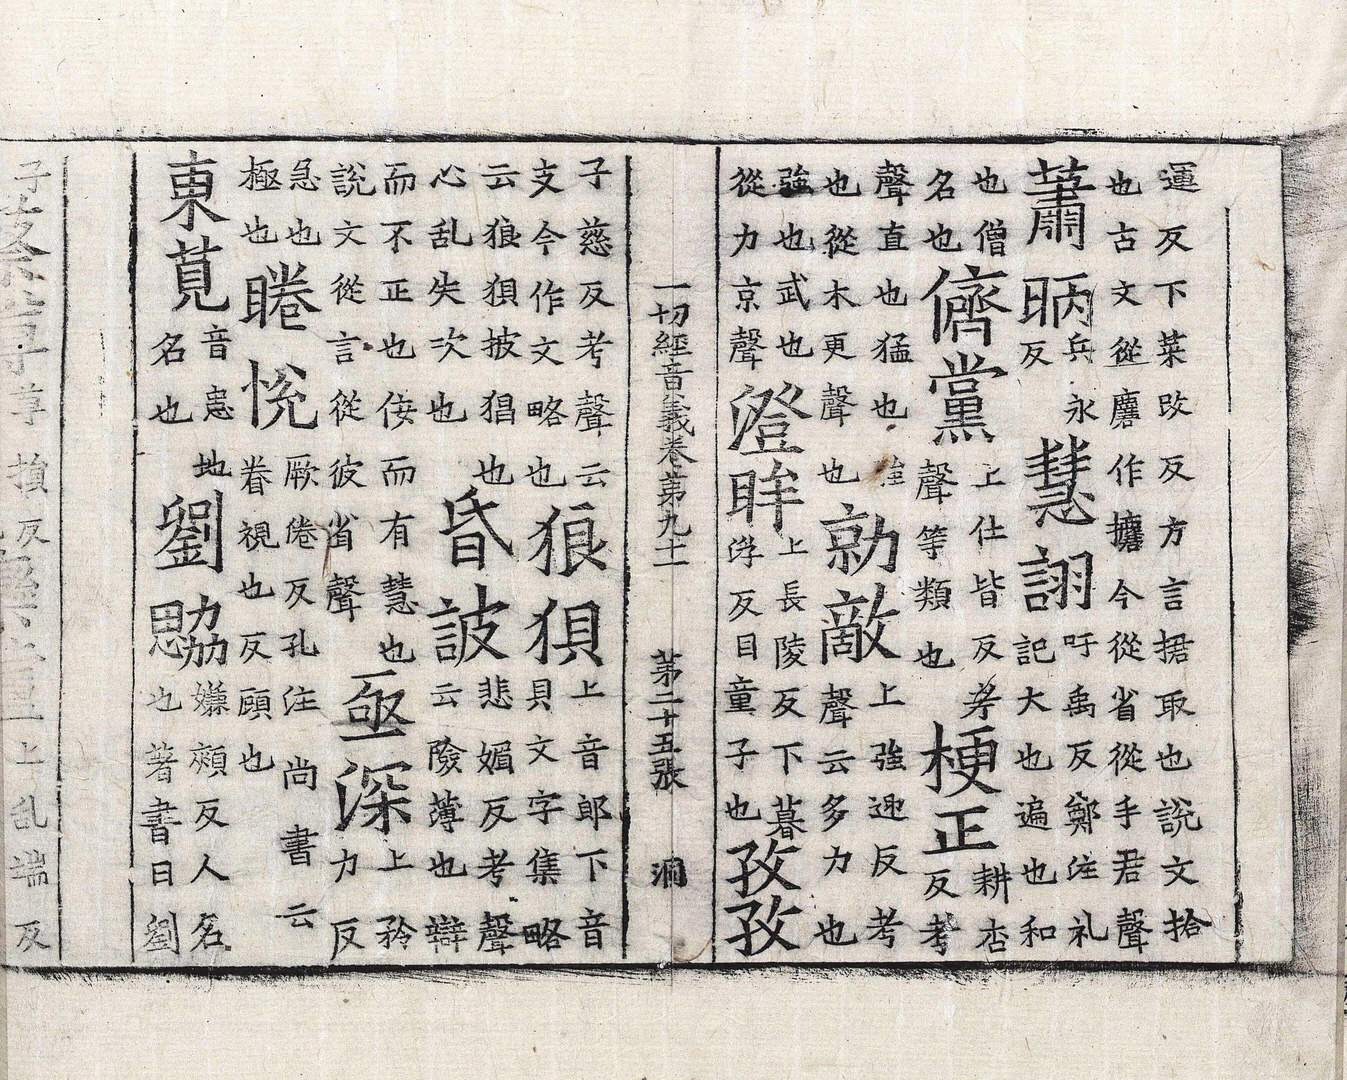 運反下菜改反方言捃取也說文拾
也古文從麏作攟今從省從手君聲
蕭昞
兵永
反
慧詡
吁禹反鄭注礼
記大也遍也和
也僧
名也
儕黨
上仕皆反考
聲等類也
梗正
耕杏
反考
聲直也猛也
也從木更聲也
勍敵
上強迎反考
聲云多力也
強也武也
從力京聲
澄眸
上長陵反下暮
浮反目童子也
孜孜
一切經音義卷第九十一 第二十五張 洞
子慈反考聲云
支今作文略也
狼狽
上音郎下音
貝文字集略
云狼狽披猖也
心乱失次也
昏詖
悲媚反考聲
云險薄也辯
而不正也佞而有慧也
說文從言從彼省聲
亟深
上矜
力反
急也
極也
睠恱
厥倦反孔注尚書云
眷視也反顧也
東莧
音 地
名也
劉勰
嫌頰反人名
也著書曰劉
上乱端反